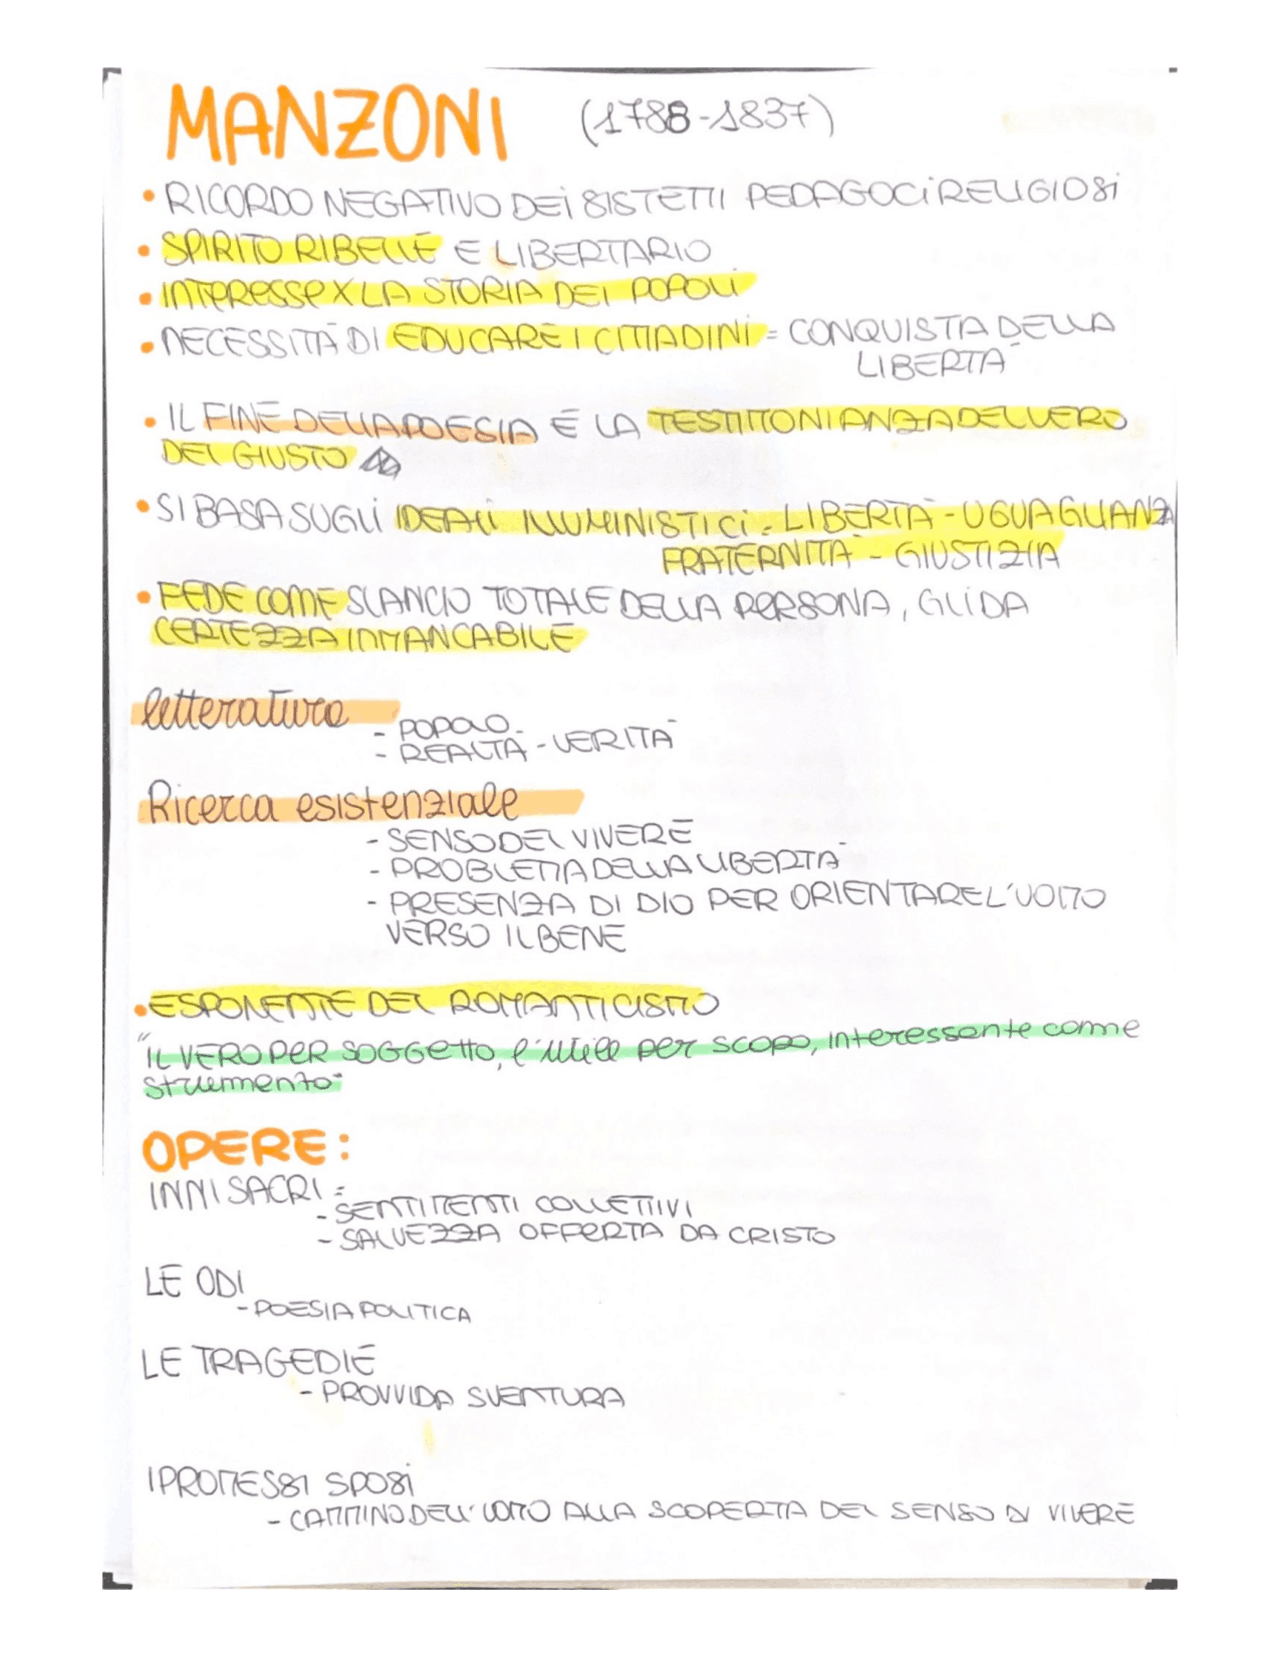 MANZONI (1788-1837)
• RICORDO NEGATIVO DEI SISTETTI PEDAGOCI RELIGIOSI
• SPIRITO RIBELLE E LIBERTARIO
• INTERESSE X LA STORIA DEI POPOLI
• NECESSITÀ DI EDUCARE I CITTADINI = CONQUISTA DELLA
LIBERTÀ
• IL FINE DELLA POESIA È LA TESTIMONIANZA DEL VERO
DEL GIUSTO
• SI BASA SUGLI IDEALI ILLUMINISTICI = LIBERTÀ - UGUAGLIANZA
FRATERNITÀ - GIUSTIZIA
• FEDE COME SLANCIO TOTALE DELLA PERSONA, GLI DA
CERTEZZA IMMANCABILE
letteratura
- POPOLO
- REALTÀ - VERITÀ
Ricerca esistenziale
- SENSO DEL VIVERE
- PROBLEMA DELLA LIBERTÀ
- PRESENZA DI DIO PER ORIENTARE L'UOMO
VERSO IL BENE
• ESPONENTE DEL ROMANTICISMO
"IL VERO PER SOGGETTO, l'utile per scopo, interessante come
strumento"
OPERE:
INNI SACRI =
- SENTIMENTI COLLETTIVI
- SALVEZZA OFFERTA DA CRISTO
LE ODI
- POESIA POLITICA
LE TRAGEDIE
- PROVVIDA SVENTURA
I PROMESSI SPOSI
- CAMMINO DELL'UOMO ALLA SCOPERTA DEL SENSO DI VIVERE